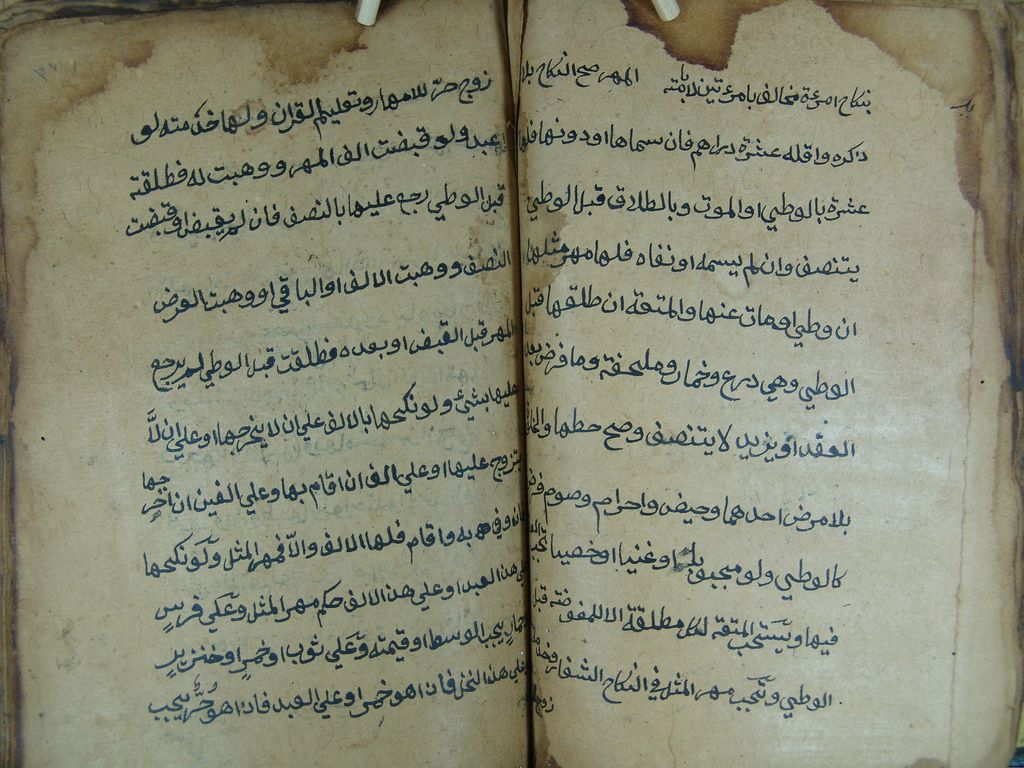 بنكاح امرءة مخالف بامرءتين لا بامته المهر صح النكاح بلا
ذكره واقله عشرة دراهم فان سماها او دونها فلها
عشرة بالوطي او الموت وبالطلاق قبل الوطي
يتنصف وان لم يسمه او نفاه فلها مهر مثلها
ان وطي او مات عنها والمتعة ان طلقها قبل
الوطي وهي درع وخمار وملحفة وما فرض بعد
العقد او يزيد لا يتنصف وصح حطها والخلوة
بلا مرض احدهما وحيض واحرام وصوم فرض
كالوطي ولو مجبوبا او عنينا او خصيا تجب
فيها ويستحب المتعة لكل مطلقة الا للمفوضة قبل
الوطي ويجب مهر المثل في النكاح الشغار وخدمة
زوج
زوج حرّ للامهار وتعليم القران ولها خدمته لو
عبد ولو قبضت الف المهر ووهبت له فطلقت
قبل الوطي رجع عليها بالنصف فان لم يقبض او قبضت
النصف ووهبت الالف او الباقي او وهبت العرض
المهر قبل القبض او بعده فطلقت قبل الوطي لم يرجع
عليها بشيء ولو نكحها بالالف علي ان لا يخرجها او علي ان لّا
يتزوج عليها او علي الف ان اقام بها وعلي الفين ان اخرجها
فان وفي به واقام فلها الالف والّا فمهر المثل ولو نكحها
علي هذا العبد او علي هذا الالف حكم مهر المثل وعلي فرس
حمار يجب الوسط او قيمته وعلي ثوب او خمر او خنزير
علي هذا الخل فاذا هو خمر او علي العبد فاذا هو حُرٌّ يجب